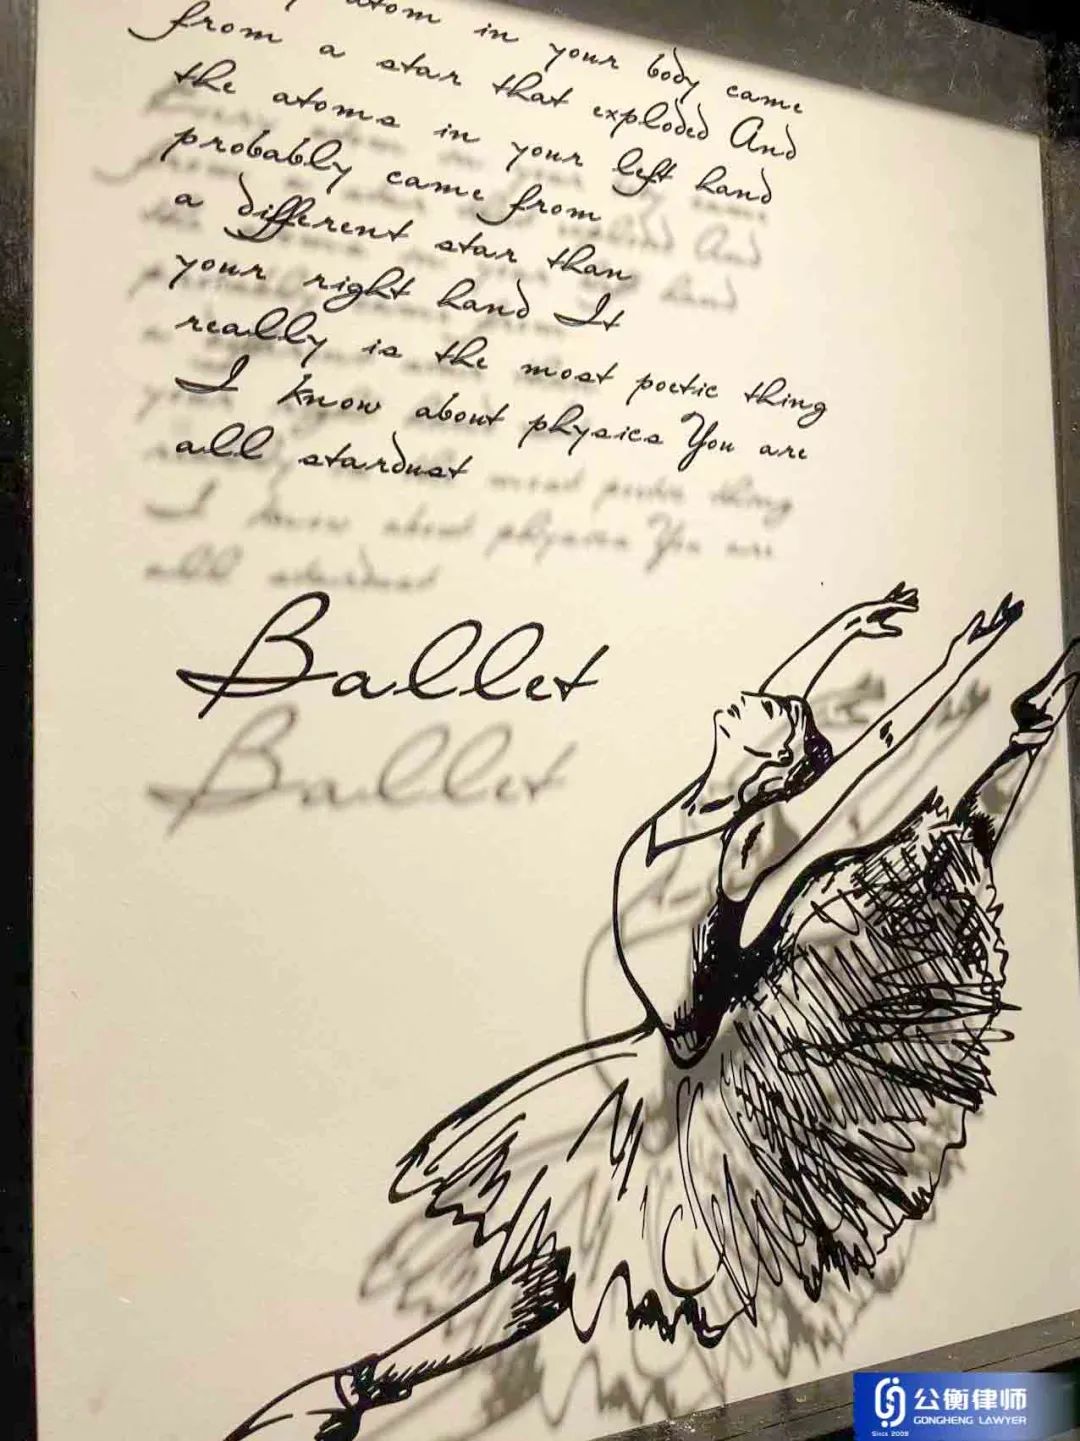 atom in your body came
from a star that exploded And
the atoms in your left hand
probably came from
a different star than
your right hand It
really is the most poetic thing
I know about physics You are
all stardust
Ballet
公衡律师
GONGHENG LAWYER
Since 2009